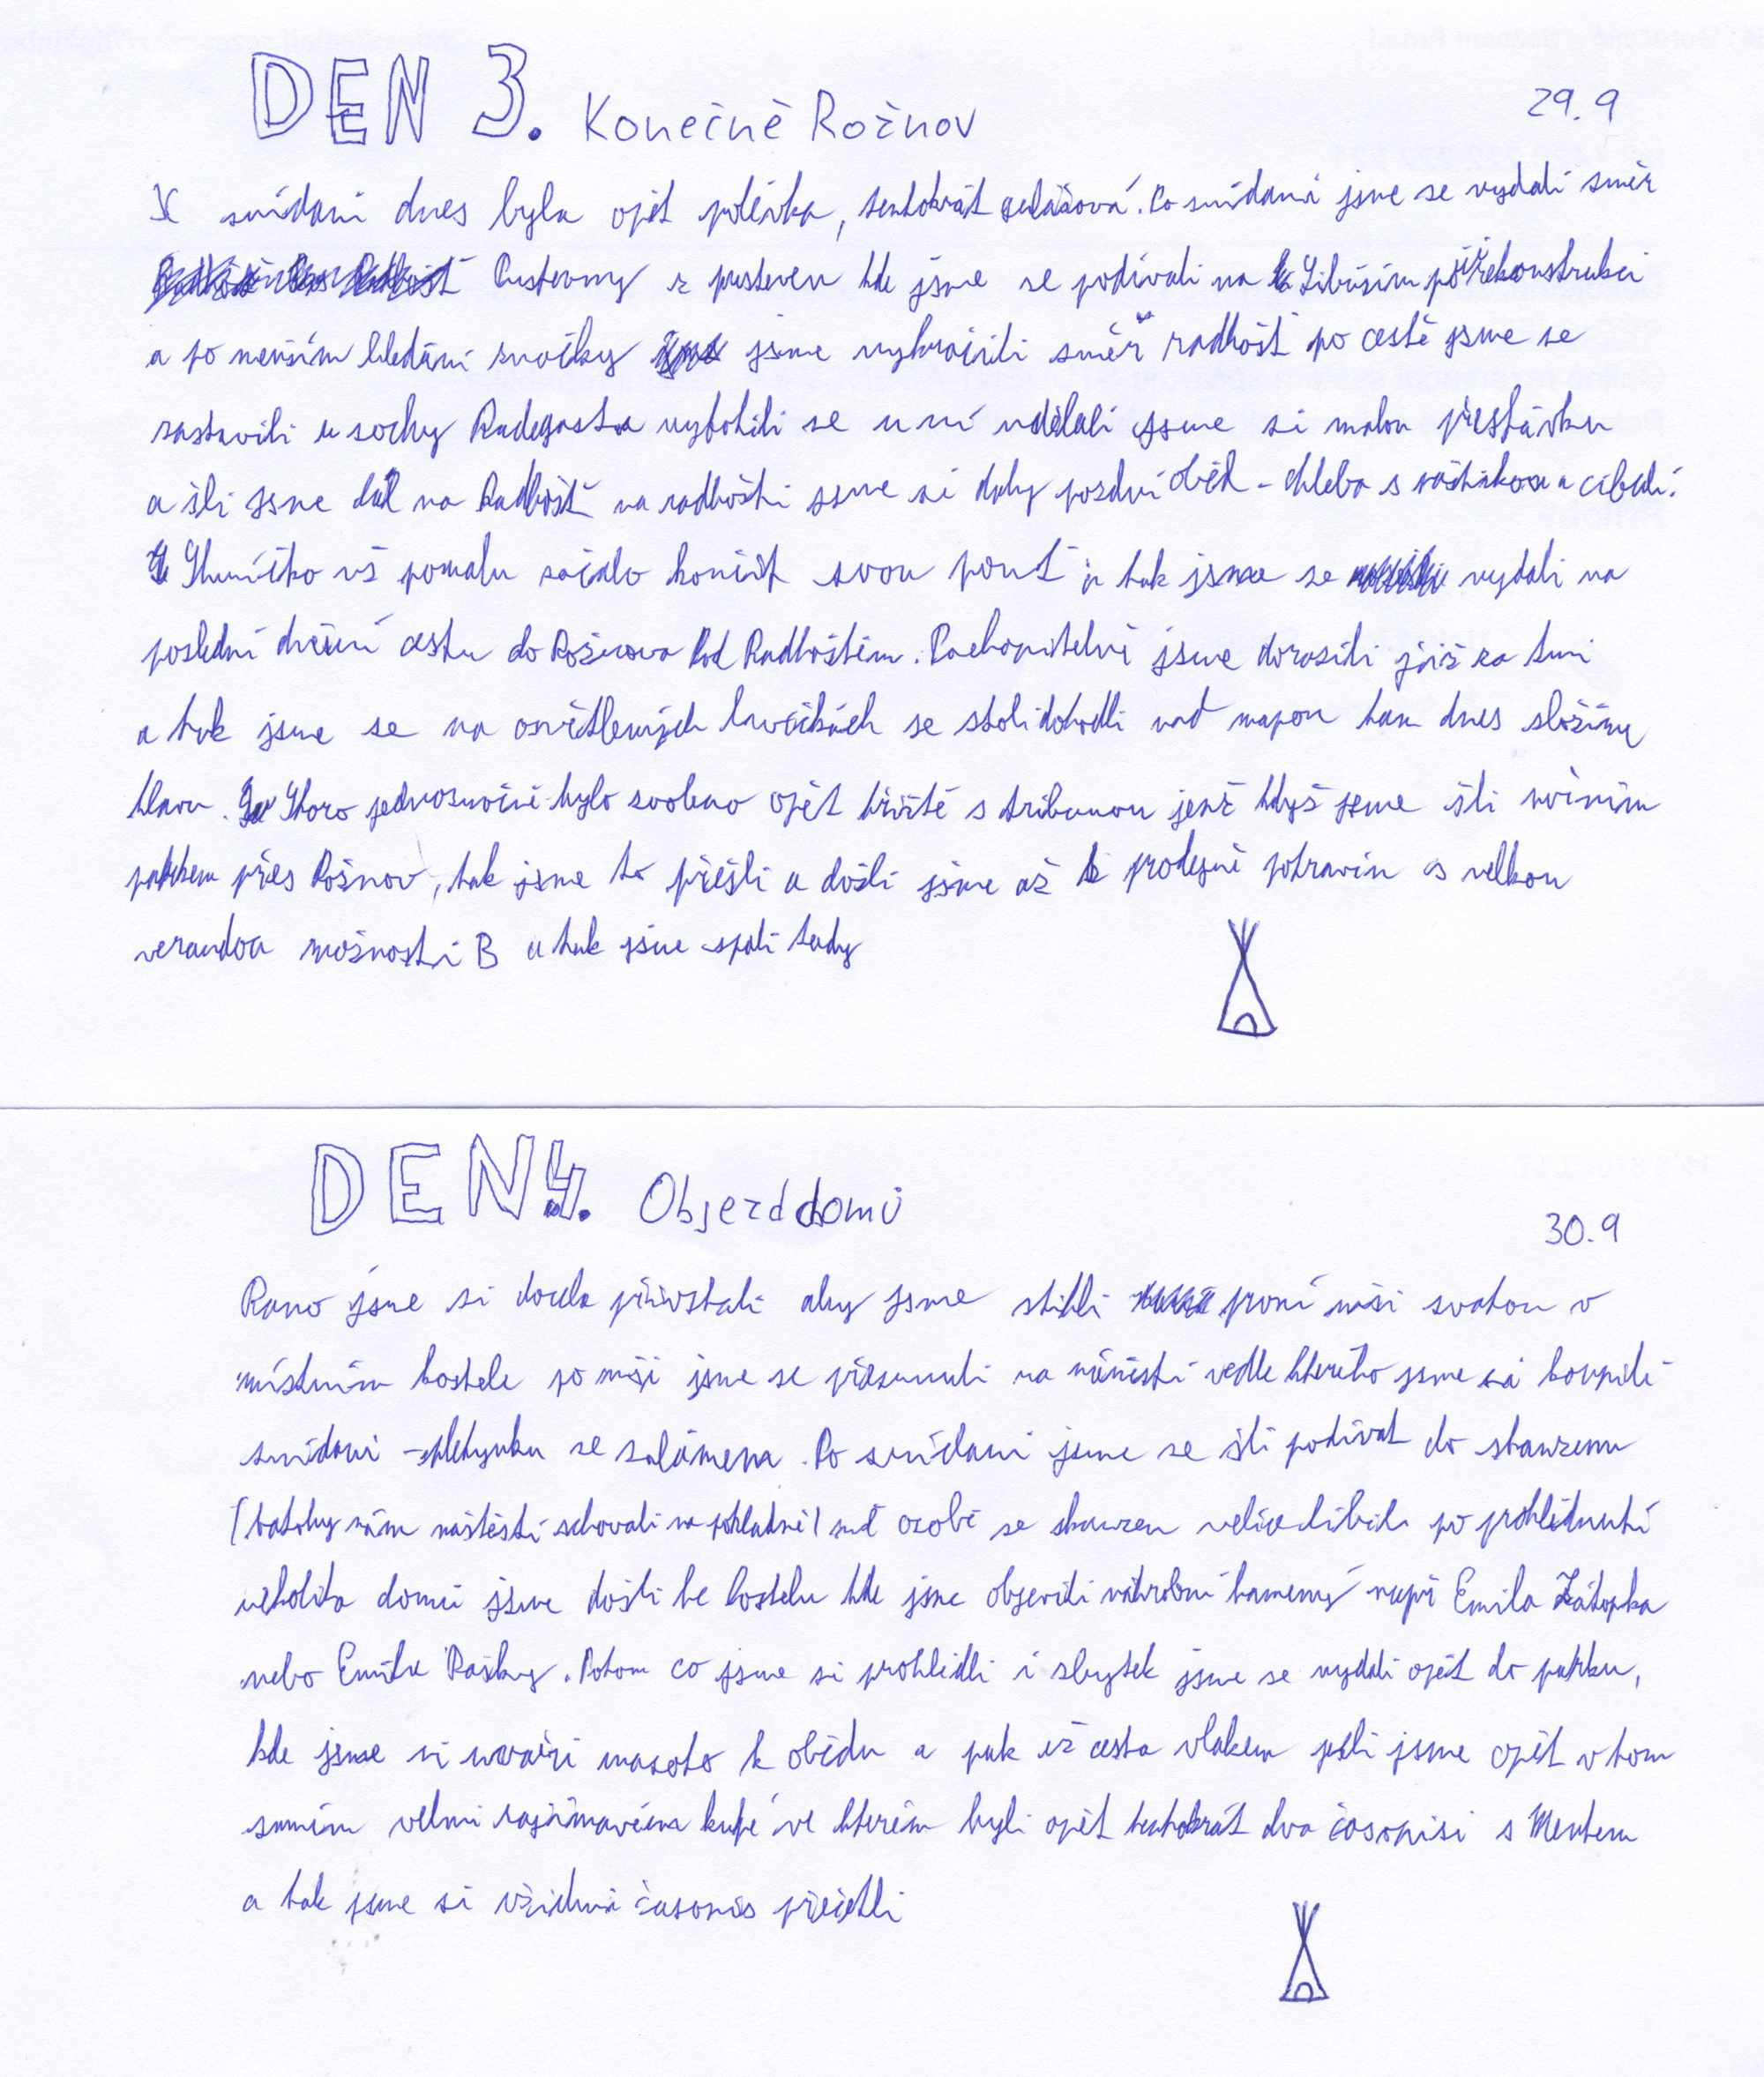 DEN 3. Konečně Rožnov 29.9
K snídani dnes byla opět polévka, tentokrát gulášová. Po snídani jsme se vydali směr
Pustevny z pusteven kde jsme se podívali na Libušín po rekonstrukci
a po menším hledání značky jsme vykročili směr radhošť po cestě jsme se
zastavili u sochy Radegasta vyfotili se u ní udělali jsme si malou přestávku
a šli jsme dál na Radhošť na radhošti jsme si daly pozdní oběd - chleba s a cibulí.
Sluníčko už pomalu začalo končit svou pouť a tak jsme se vydali na
poslední dnešní cestu do Rožnova Pod Radhoštěm. Pochopitelně jsme dorazili již za tmi
a tak jsme se na osvětlených lavičkách se stoli dohodli nad mapou kam dnes složíme
hlavu. Skoro jednoznačně bylo zvoleno opět hřiště s tribunou jenž když jsme šli nočním
parkem přes Rožnov, tak jsme to přešli a došli jsme až k prodejně potravin s velkou
verandou možnosti B a tak jsme spali tady
DEN 4. Objezd domů 30.9
Rano jsme si docela přivstali aby jsme stihli první mši svatou v
místním kostele po mši jsme se přesunuli na náměstí vedle kterého jsme si koupili
snídani - pletýnku se salámem. Po snídani jsme se šli podívat do skanzenu
(batohy nám naštěstí schovali na pokladně) mě osobě se skanzen velice líbil po prohlédnutí
několika domů jsme došli ke kostelu kde jsme objevili náhrobní kameny např Emila Zátopka
nebo Emila Rašky. Potom co jsme si prohlédli i zbytek jsme se vydali opět do parku,
kde jsme si uvařili masoto k obědu a pak už cesta vlakem jeli jsme opět v tom
samím velmi zajímavém kupé ve kterém byli opět tentokrát dva časopisi s Mentem
a tak jsme si všichni časopis přečetli